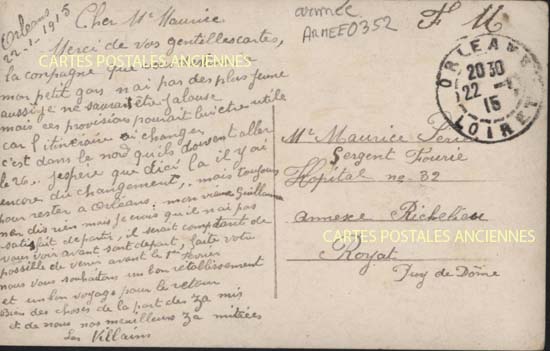 Orléans
22-1-1915
Cher Mr Maurice
Merci de vos gentilles cartes,
la compagne que
mon petit gas n'ai pas des plus jeune
aussi je ne saurait être Jalouse
mais ces provisions pourait lui être utile
car l'itinéraire ai changer
c'est dans le nord qu'ils doivent aller
le 26. jespère que dici la il y ai
encore du changement, mais toujours
pour rester a Orléans. mon vieux Guillaume
non dis rien mais je crois qu'il nai pas
satisfait de partir, il serait comptant de
vous voir avant sont depart, faite votre
possible de venir avant le 1er
nous vous souhaitons un bon rétablissement
et un bon voyage pour le retour
bien des choses de la part des za mis
et de nous nos meilleures za mitiées
Les Villains
armée
ARMEE0352
F M
ORLEANS
20 30
22 - 1
15
LOIRET
Mr Maurice
Sergent Fourrie
Hôpital no 32
annexe Richelieu
Royat
Puy de Dôme
CARTES POSTALES ANCIENNES
CARTES POSTALES ANCIENNES
CARTES POSTALES ANCIENNES